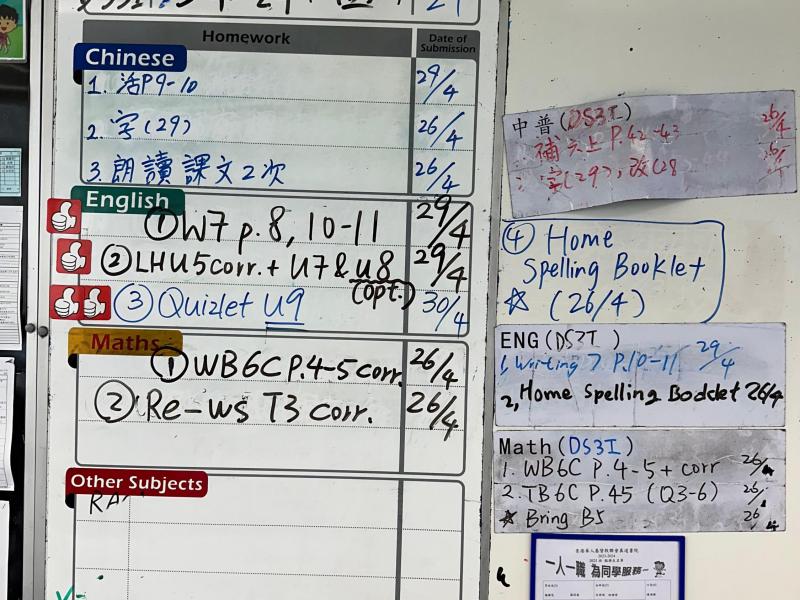 Homework
Date of Submission
Chinese
1. 活P9-10 29/4
2. 字(29) 26/4
3. 朗讀課文2次 26/4
English
① W7 p.8, 10-11 29/4
② LHU5corr. + U7 & u8 (opt.) 29/4
③ Quizlet U9 30/4
Maths
① WB6C P.4-5 corr. 26/4
② Re-ws T3 corr. 26/4
Other Subjects
中普(DS3I)
補六上 P.42-43 26/4
字(29), 改(28 26/4
④ Home
Spelling Booklet
☆ (26/4)
ENG(DS3I)
1, Writing 7 P.10-11 29/4
2, Home Spelling Booklet 26/4
Math(DS3I)
1. WB6C P.4-5 + corr 26/4
2. TB6C P.45 (Q3-6) 26/
☆ Bring B5 26/4
2023-2024
一人一職 為同學服務